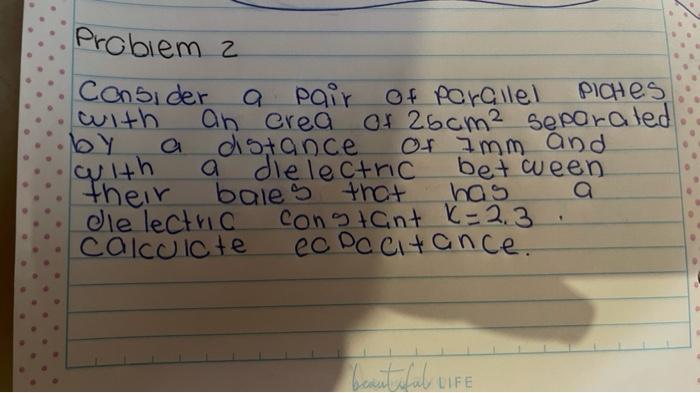 Problem 2
Consider a pair of parallel plates
with an area of 26cm² separated
by a distance of 7mm and
with a dielectric between
their bales that has a
dielectric constant K=2.3.
calculate capacitance.
beautiful LIFE